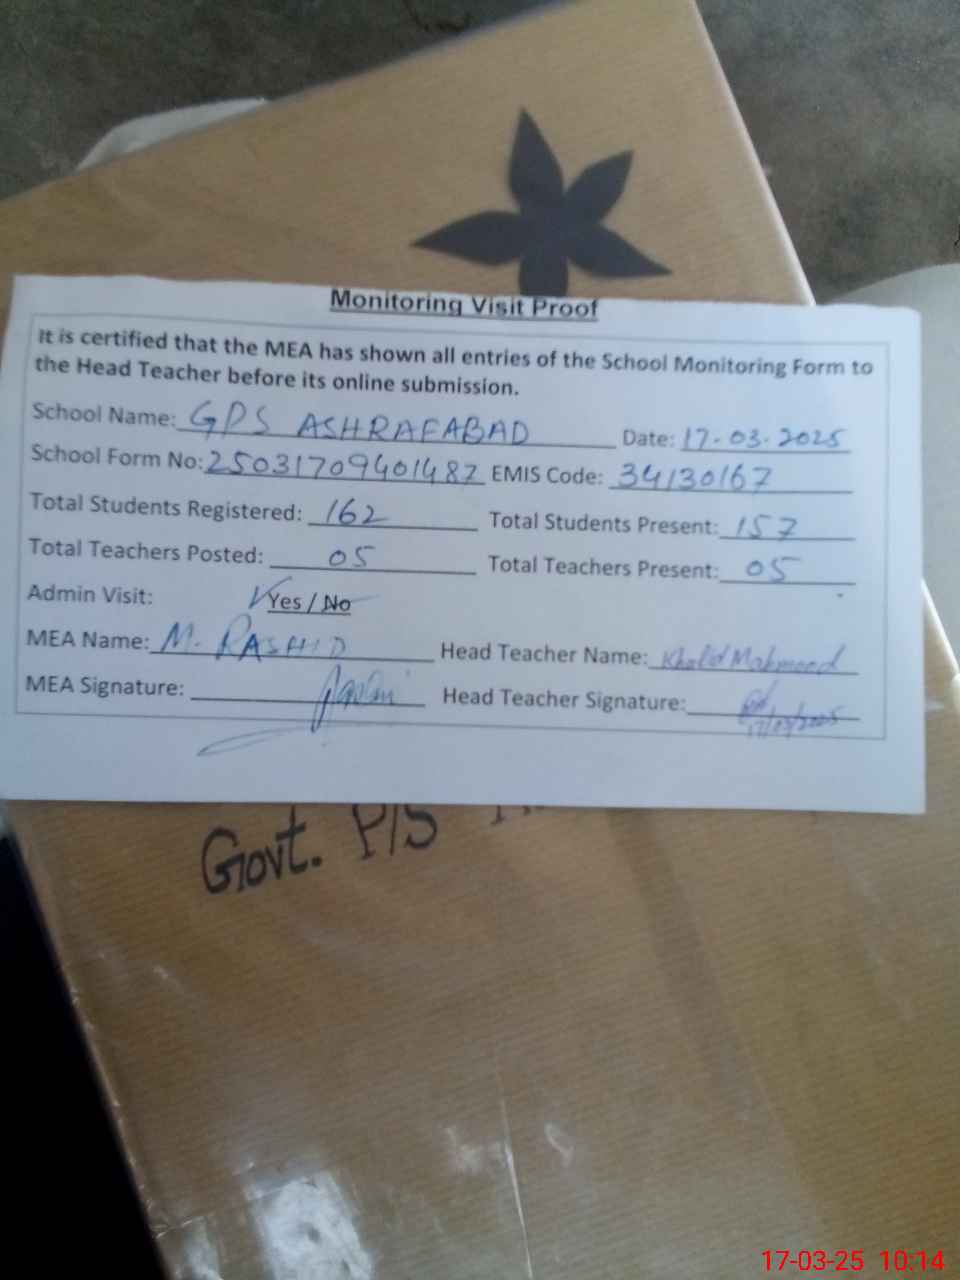 Monitoring Visit Proof
It is certified that the MEA has shown all entries of the School Monitoring Form to
the Head Teacher before its online submission.
School Name: GPS ASHRAFABAD Date: 17-03-2025
School Form No: 25031709401487 EMIS Code: 34130167
Total Students Registered: 162 Total Students Present: 157
Total Teachers Posted: 05 Total Teachers Present: 05
Admin Visit: Yes / No
MEA Name: M. RASHID Head Teacher Name: Khalid Mahmood
MEA Signature: Head Teacher Signature:
17/03/2025
Govt. P/S
17-03-25 10:14